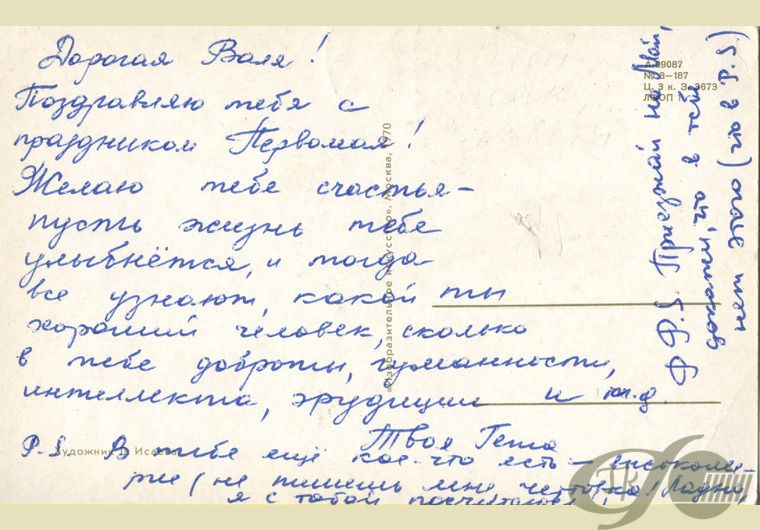 Дорогая Валя!
Поздравляю тебя с
праздником Первомая!
Желаю тебе счастья –
пусть жизнь тебе
улыбнётся, и тогда
все узнают, какой ты
хороший человек, сколько
в тебе доброты, гуманности,
интеллекта, эрудиции и т.д.
Твоя Гета
P.S В тебе ещё кое-что есть – высокоме-
рие (не пишешь мне чертовка! Ладно,
я с тобой посчитаюсь
P P.S. Приезжай на Май,
докажи, что в тебе
нет этого (что в P.S)
А-09087
№ 8–187
Ц. 3 к. З. 3673
«Изобразительное искусство». Москва, 1970
Художник Исаев